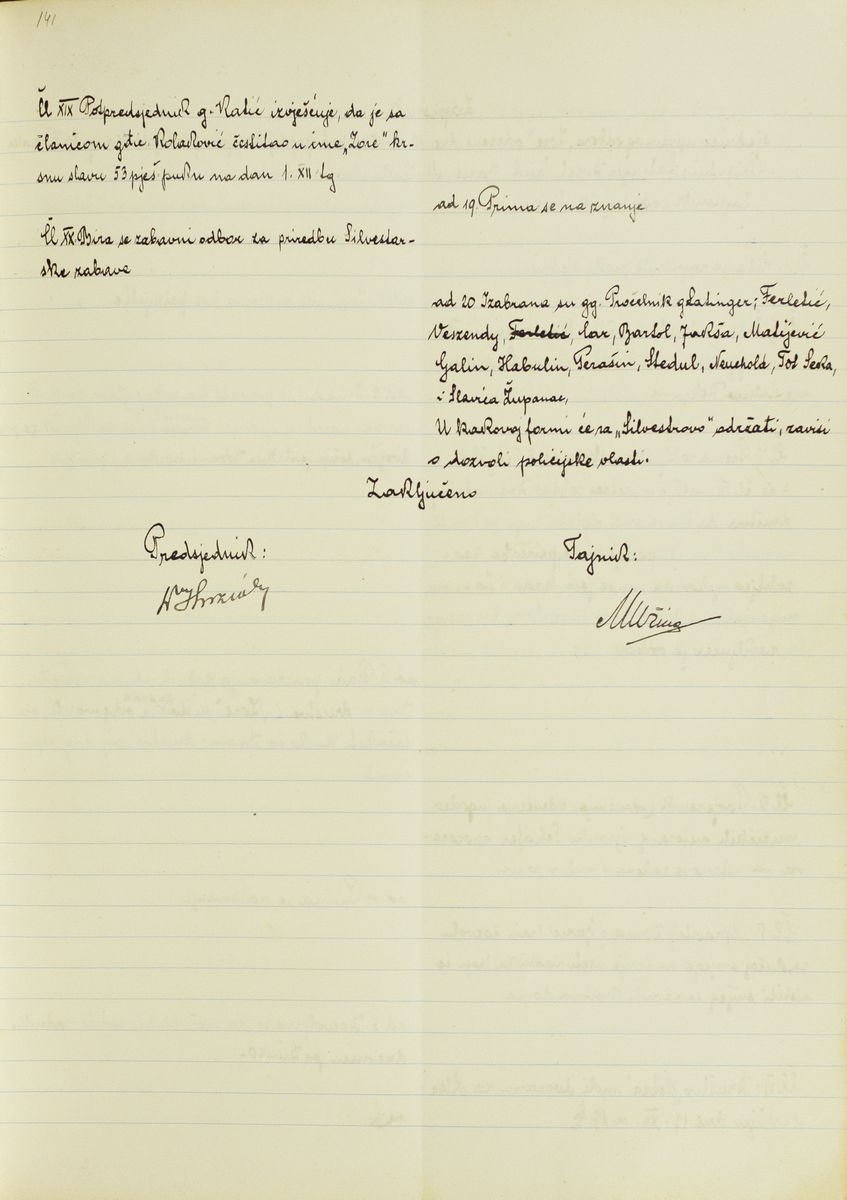 141
Čl XIX Potpredsjednik g. Katić izvješćuje, da je sa
članicom gđe. Kolaković čestitao u ime „Zore" kr-
snu slavu 53 pješ puku na dan 1. XII tg
ad 19. Prima se na znanje
Čl XX. Bira se zabavni odbor za priredbu Silvestar-
ske zabave
ad 20 Izabrana su gg. Pročelnik g Latinger, Ferletić,
Veszendy, Ferletić, Car, Bartol, Jakša, Matijević
Galin, Habulin, Perašin, Stedul, Neuhold, Tot Seka,
i Slavica Županac,
U kakovoj formi će sa „Silvestrovo" održati, zavisi
o dozvoli policijske vlasti.
Zaključeno
Predsjednik:
Tajnik: